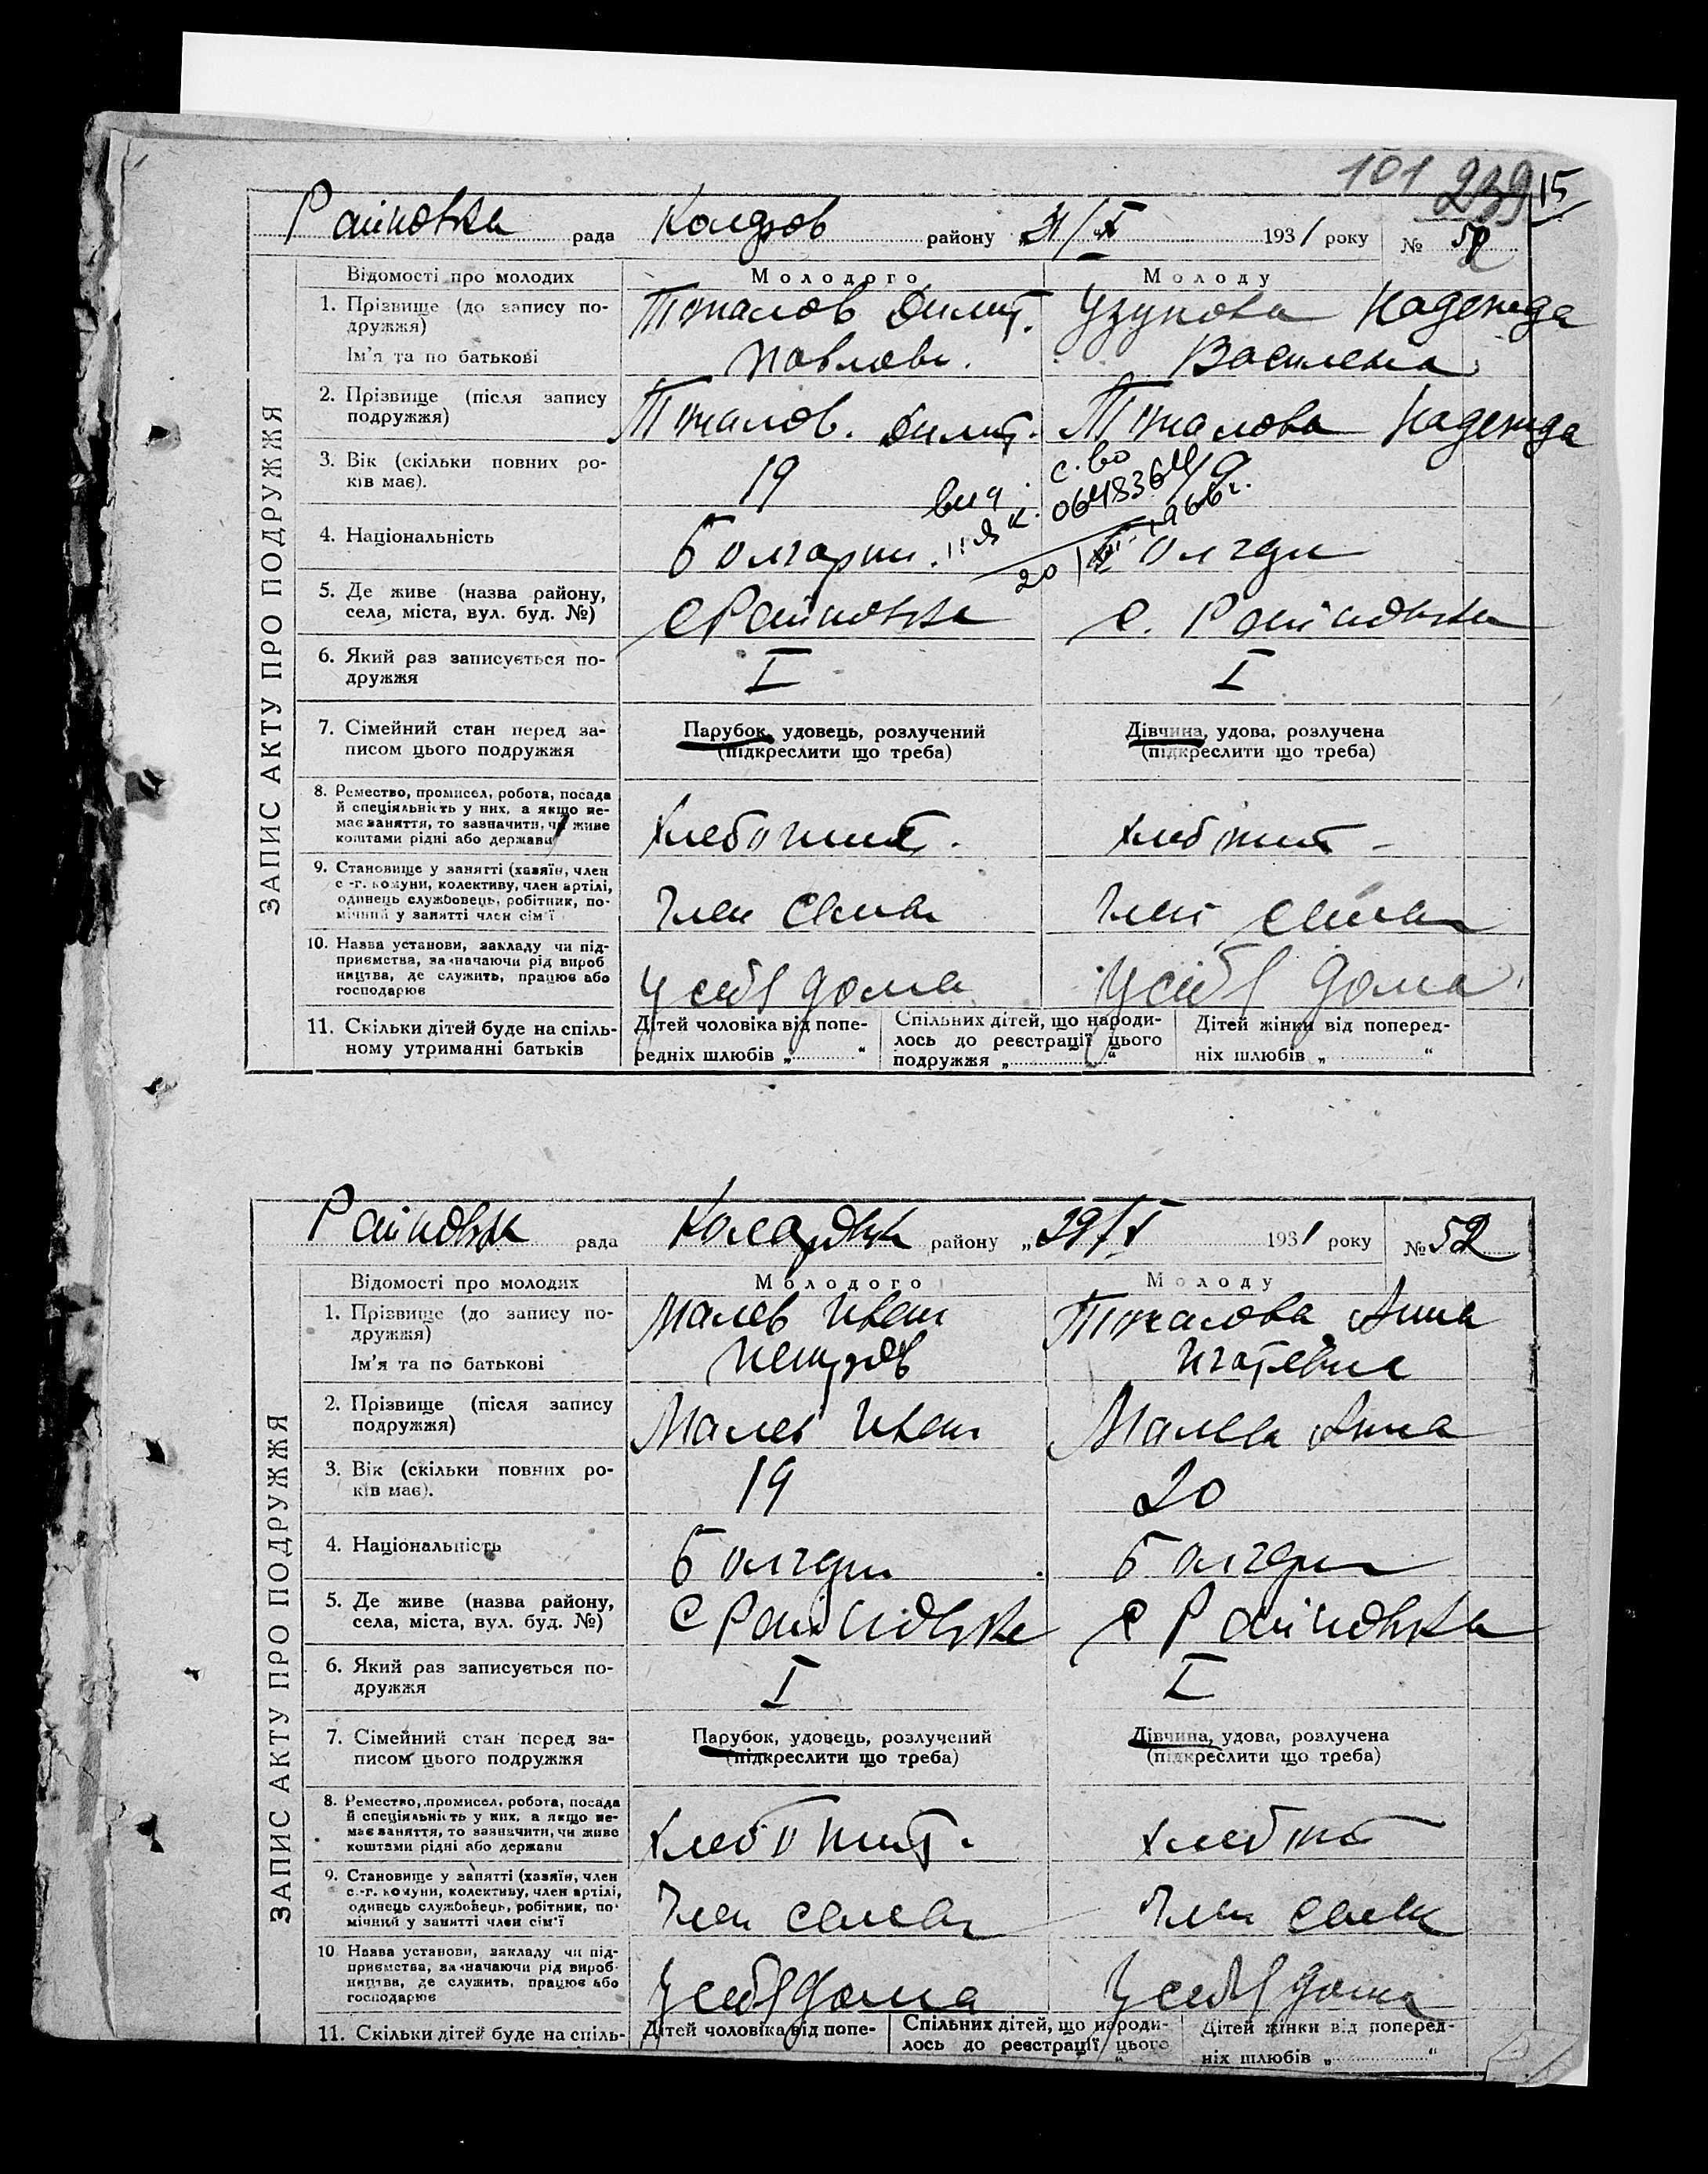 101 239 15
Райновка рада Коларов району 21/X 1931 року №
Відомості про молодих Молодого Молоду
ЗАПИС АКТУ ПРО ПОДРУЖЖЯ
1. Прізвище (до запису по-
дружжя)
Топалов Димит. Узунова Надежда
Ім'я та по батькові Павлов. Василева
2. Прізвище (після запису
подружжя)
Топалов. Димит. Топалова Надежда
3. Вік (скільки повних ро-
ків має).
19 19
с-во
0648364
20 1966г.
4. Національність Болгарин. Болгарк
5. Де живе (назва району,
села, міста, вул. буд. №)
с Райновка с. Райновка
6. Який раз записується по-
дружжя
I I
7. Сімейний стан перед за-
писом цього подружжя
Парубок, удовець, розлучений
(підкреслити що треба)
Дівчина, удова, розлучена
(підкреслити що треба)
8. Ремество, промисел, робота, посада
й спеціяльність у них, а якщо не-
має заняття, то зазначити, чи живе
коштами рідні або держави
Хлебопаш. Хлебпаш
9. Становище у занятті (хазяїн, член
с.-г. комуни, колективу, член артілі,
одинець службовець, робітник, по-
мічний у занятті член сім'ї
Член семи Член семи
10. Назва установи, закладу чи під-
приємства, зазначаючи рід вироб
ництва, де служить, працює або
господарює
У себя дома У себя дома
11. Скільки дітей буде на спіль-
ному утриманні батьків
Дітей чоловіка від попе-
редніх шлюбів „ “
Спільних дітей, що народи-
лось до реєстрації цього
подружжя „ “
Дітей жінки від поперед-
ніх шлюбів „ “
Райновка рада Коларовка району „29/X 1931 року № 52
Відомості про молодих Молодого Молоду
ЗАПИС АКТУ ПРО ПОДРУЖЖЯ
1. Прізвище (до запису по-
дружжя)
Малев Иван Топалова Анна
Ім'я та по батькові Петров Игнатевна
2. Прізвище (після запису
подружжя)
Малев Иван Малева Анна
3. Вік (скільки повних ро-
ків має).
19 20
4. Національність Болгарин Болгарк
5. Де живе (назва району,
села, міста, вул. буд. №)
с Райновка с Райновка
6. Який раз записується по-
дружжя
I I
7. Сімейний стан перед за-
писом цього подружжя
Парубок, удовець, розлучений
(підкреслити що треба)
Дівчина, удова, розлучена
(підкреслити що треба)
8. Ремество, промисел, робота, посада
й спеціяльність у них, а якщо не-
має заняття, то зазначити, чи живе
коштами рідні або держави
Хлебопаш. Хлебпаш
9. Становище у занятті (хазяїн, член
с.-г. комуни, колективу, член артілі,
одинець службовець, робітник, по-
мічний у занятті член сім'ї
Член семи Член семи
10. Назва установи, закладу чи під-
приємства, зазначаючи рід вироб-
ництва, де служить, працює або
господарює
У себя дома У себя дома
11. Скільки дітей буде на спіль-
Дітей чоловіка від попе-
Спільних дітей, що народи-
лось до реєстрації цього
Дітей жінки від поперед-
ніх шлюбів „ “